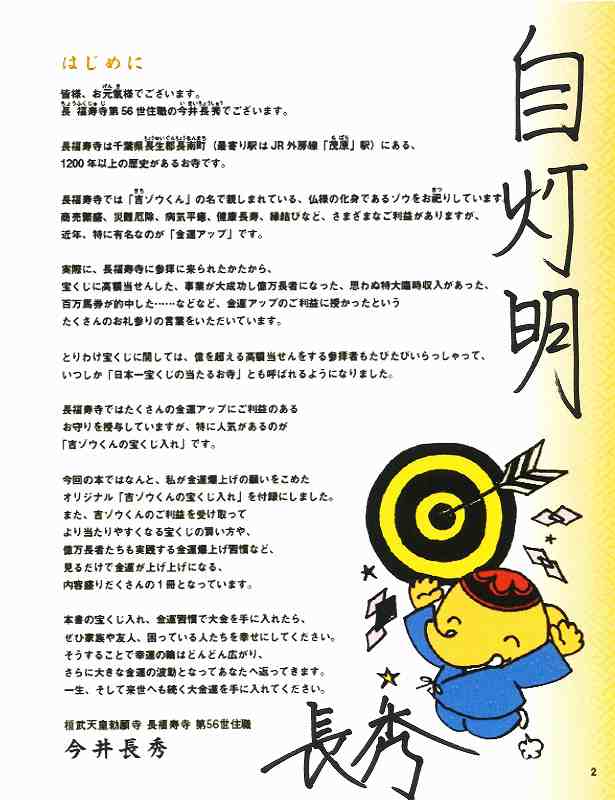 はじめに
皆様、お元氣様でございます。
長福寿寺第56世住職の今井長秀でございます。
長福寿寺は千葉県長生郡長南町（最寄り駅はJR外房線「茂原」駅）にある、
1200年以上の歴史があるお寺です。
長福寿寺では「吉ゾウくん」の名で親しまれている、仏様の化身であるゾウをお祀りしています。
商売繁盛、災難厄除、病気平癒、健康長寿、縁結びなど、さまざまなご利益がありますが、
近年、特に有名なのが「金運アップ」です。
実際に、長福寿寺に参拝に来られたかたから、
宝くじに高額当せんした、事業が大成功し億万長者になった、思わぬ特大臨時収入があった、
百万馬券が的中した……などなど、金運アップのご利益に授かったという
たくさんのお礼参りの言葉をいただいています。
とりわけ宝くじに関しては、億を超える高額当せんをする参拝者もたびたびいらっしゃって、
いつしか「日本一宝くじの当たるお寺」とも呼ばれるようになりました。
長福寿寺ではたくさんの金運アップにご利益のある
お守りを授与していますが、特に人気があるのが
「吉ゾウくんの宝くじ入れ」です。
今回の本ではなんと、私が金運爆上げの願いをこめた
オリジナル「吉ゾウくんの宝くじ入れ」を付録にしました。
また、吉ゾウくんのご利益を受け取って
より当たりやすくなる宝くじの買い方や、
億万長者たちも実践する金運爆上げ習慣など、
見るだけで金運が上げ上げになる、
内容盛りだくさんの1冊となっています。
本書の宝くじ入れ、金運習慣で大金を手に入れたら、
ぜひ家族や友人、困っている人たちを幸せにしてください。
そうすることで幸運の輪はどんどん広がり、
さらに大きな金運の波動となってあなたへ返ってきます。
一生、そして来世へも続く大金運を手に入れてください。
桓武天皇勅願寺 長福寿寺 第56世住職
今井長秀
自灯明
長秀
2